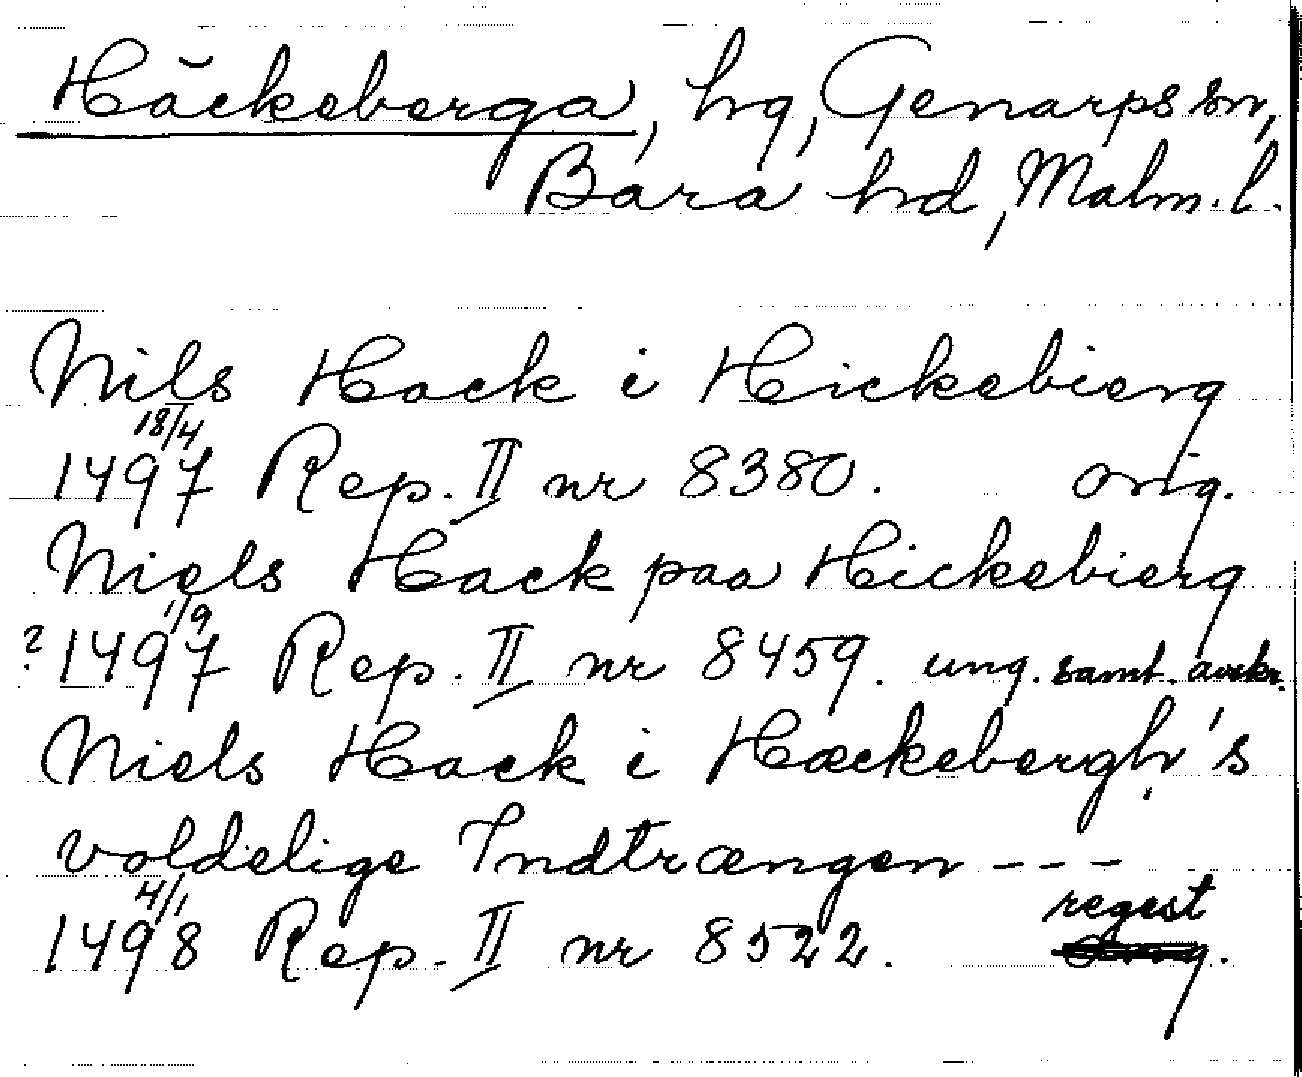 Häckeberga, hg, Genarps sn,
Bara hd, Malm. l.
Nils Hack i Hickebierg
18/4
1497 Rep. II nr 8380. orig.
Niels Hack paa Hickebierg
1/9
? 1497 Rep. II nr 8459. ung. samt. avskr.
Niels Hack i Hæckebergh's
voldelige Indtrængen ---
4/1 regest
1498 Rep. II nr 8522. orig.